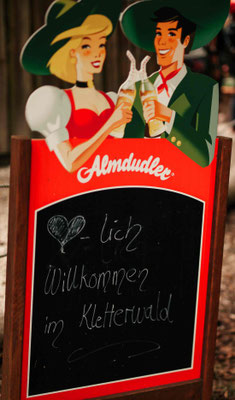 Almdudler
♥-lich
Willkommen
im Kletterwald